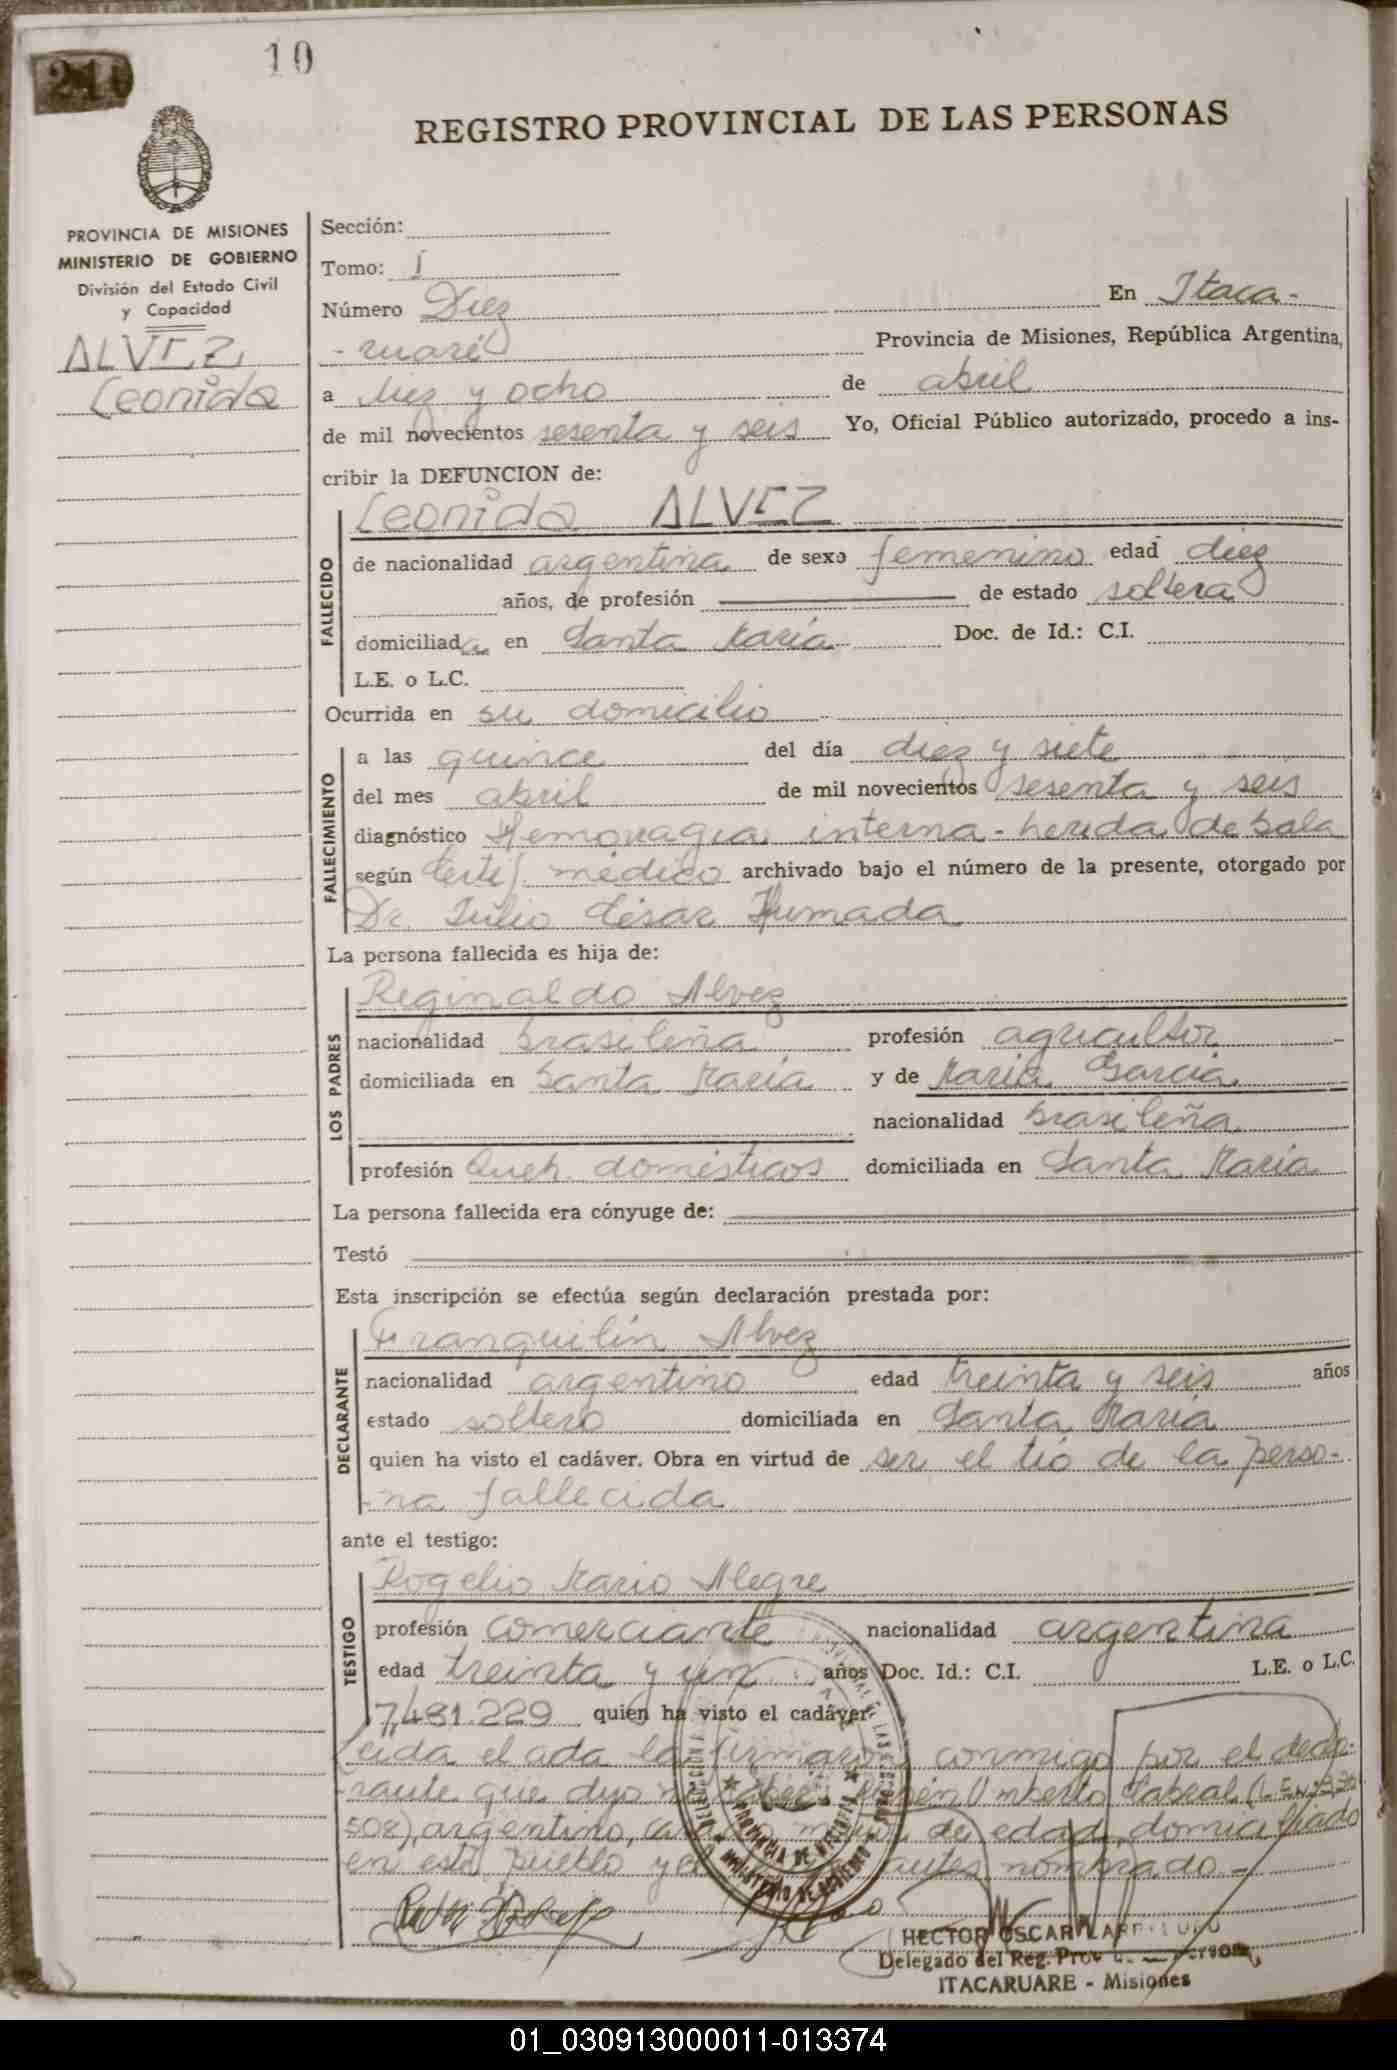 210
10
REGISTRO PROVINCIAL DE LAS PERSONAS
PROVINCIA DE MISIONES
MINISTERIO DE GOBIERNO
División del Estado Civil
y Capacidad
ALVEZ
Leonida
Sección:
Tomo: I
Número Diez En Itaca-
-ruaré Provincia de Misiones, República Argentina,
a diez y ocho de abril
de mil novecientos sesenta y seis Yo, Oficial Público autorizado, procedo a ins-
cribir la DEFUNCION de:
Leonida ALVEZ
FALLECIDO
de nacionalidad argentina de sexo femenino edad diez
años, de profesión de estado soltera
domiciliada en Santa María Doc. de Id.: C.I.
L.E. o L.C.
Ocurrida en su domicilio
FALLECIMIENTO
a las quince del día diez y siete
del mes abril de mil novecientos sesenta y seis
diagnóstico Hemorragia interna - herida de bala
según certif. médico archivado bajo el número de la presente, otorgado por
Dr. Julio César Humada
La persona fallecida es hija de:
LOS PADRES
Reginaldo Alvez
nacionalidad brasileña profesión agricultor
domiciliada en Santa María y de María García
nacionalidad brasileña
profesión Queh. domésticos domiciliada en Santa María
La persona fallecida era cónyuge de:
Testó
Esta inscripción se efectúa según declaración prestada por:
DECLARANTE
Franquilín Alvez
nacionalidad argentino edad treinta y seis años
estado soltero domiciliada en Santa María
quien ha visto el cadáver. Obra en virtud de ser el tío de la perso-
-na fallecida
ante el testigo:
TESTIGO
Rogelio Mario Alegre
profesión comerciante nacionalidad argentina
edad treinta y un años Doc. Id.: C.I. L.E. o L.C.
7,481.229 quien ha visto el cadáver.
Leida el acta la firmaron conmigo por el decla-
rante que dijo Cabral
508), argentino, de edad, domiciliado
en este pueblo y el antes nombrado -
PROVINCIA DE MISIONES
MINISTERIO DE GOBIERNO
HECTOR OSCAR
Delegado del Reg. Prov. Personas
ITACARUARE - Misiones
01_030913000011-013374